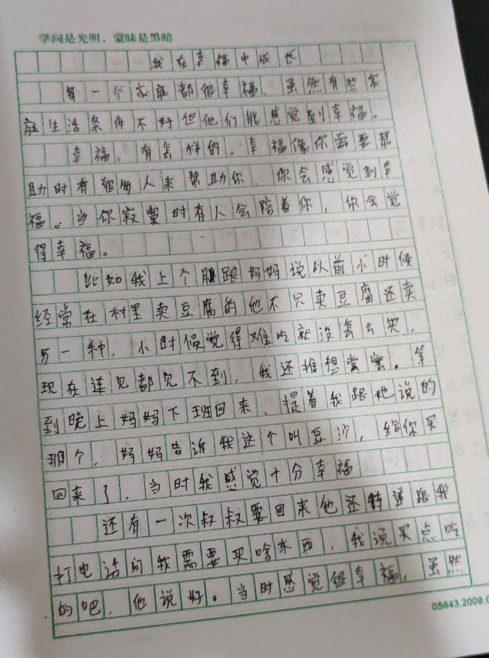 学问是光明，蒙昧是黑暗
我在幸福中成长
每一个家庭都很幸福，虽然有些家
庭生活条件不好但他们能感觉到幸福。
幸福，有会样的。幸福像你需要帮
助时有很多人来帮助你，你会感觉到幸
福。当你寂寞时有人会陪着你，你会觉
得幸福。
比如我上个月跟妈妈说以前小时候
经常在村里卖豆腐的他不只卖豆腐还卖
另一种，小时候觉得难吃就没怎么买，
现在连见都见不到，我还挺想尝尝。等
到晚上妈妈下班回来，提着我跟她说的
那个，妈妈告诉我这个叫豆沙，给你买
回来了，当时我感觉十分幸福
还有一次叔叔要回来他还特递跟我
打电话问我需要买啥东西，我说买点吃
的吧，他说好。当时感觉很幸福，虽然
05843.2009.